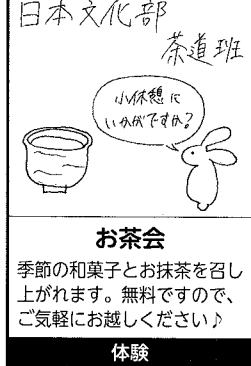 日本文化部
茶道班
小休憩に
いかがですか?
お茶会
季節の和菓子とお抹茶を召し
上がれます。無料ですので、
ご気軽にお越しください♪
体験